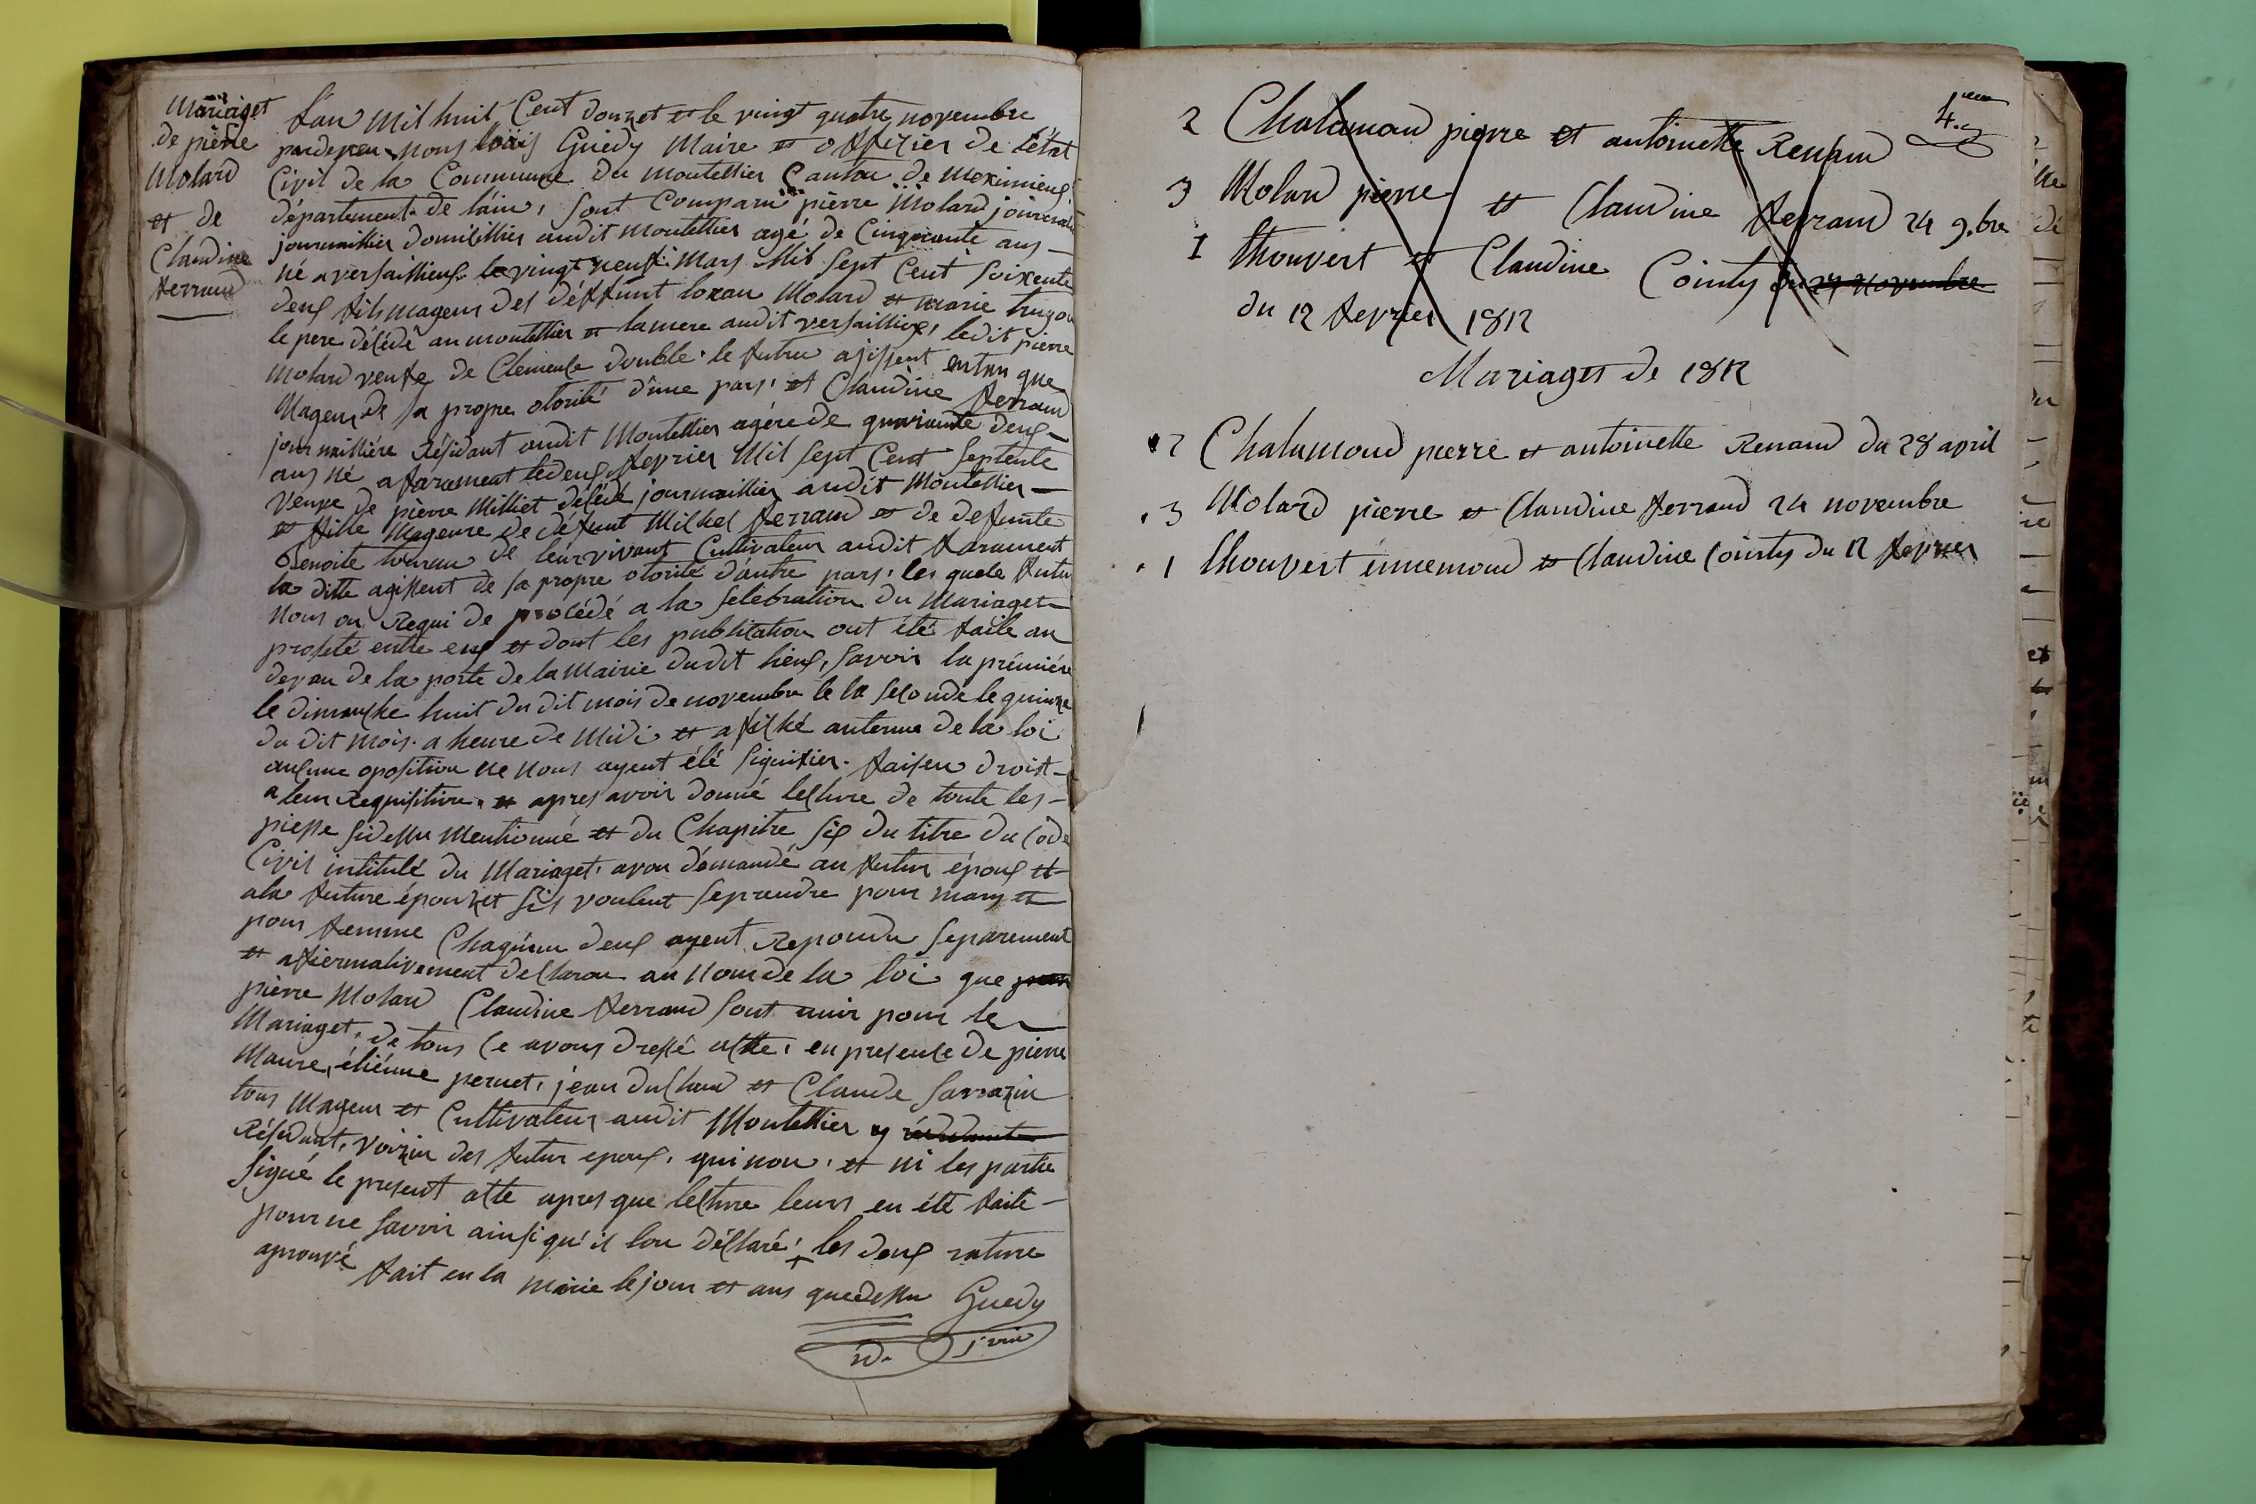 Mariaget
de piérre
Molard
et de
Claudine
ferrand
L'an mil huit Cent douzet et le vingt quatre novembre
pardevan nous louis Guédy Maire et offizier de l'état
Civil de la Commune du montellier Canton de meximieux
département de l'ain, sont Comparu pierre Molard journalié
journaillier domicillier audit montellier agé de Cinquante ans
né a versaillieux le vingt neuf mars Mil sept Cent soixente
deux fils mageur des déffunt Loran Molard et marie hugon
le pere décédé au montellier et la mere audit versaillieux, ledit pierre
Molard veufe de Clémense double le futur ajissent entan que
Mageur de sa propre otorité d'une pars, et Claudine ferrand
journaillière Résidant audit Montellier agére de quarunte deux
ans né a faramant le deux fevrier Mil sept Cent septente
veuve de pierre Milliet décédé journaillier audit Montellier
et fille Mageure de défunt Milhel ferrand et de defunte
Benoite de leur vivant Cultivateur audit farament
la ditte agissent de sa propre otorité d'autre pars, les quele futur
Nous on Requi de procédé a la selebration du Mariaget
projeté entre eux et dont les publication ont été faite au
devan de la porte de la Mairie dudit lieux, savoir la prémiére
le dimanche huit du dit mois de novembre le la seconde le quinze
du dit mois a heure de Midi et afilhé au terme de la loi
aucune oposition ne nous ayent été signifier. faisen droist
a leur Requisition et apres avoir donné lecture de toute les
piesse sidessu mentionné et du Chapitre six du titre du Code
Civil intitulé du Mariaget, avon démandé au futur époux et
a la future épouzet sils voulent se prendre pour mary et
pour femme Chaqéun deux ayent Repondu separement
et afiermativement declaron au Nom de la loi que
pierre Molard Claudine ferrand sont unir pour le
Mariaget, de tous Ce avons dressé atte, en presense de pierre
Maure, étiénne pernet, jean duclaud et Claude Sarrazin
tous Mageur et Cultivateur audit Montellier y
Résidant, voizin des futur epoux, qui non, et ni les partie
signé le present atte apres que lecture leurs en été faite
pour ne savoir ainsi qu'il l'on déclaré, les deux rature
aprouvé fait en la mairie le jour et ans quedessu Guedy
4.eme
2 Chalamon pierre et antoinette Renand
3 Molard pierre et Claudine ferrand 24 9.bre
1 Chouvert et Claudine Cointy du 24 Novembre
du 12 fevrier 1812
Mariaget de 1812
2 Chalumond pierre et antoinette Renand du 28 april
3 Molard pierre et Claudine ferrand 24 novembre
1 Chouvert énnemond et Claudine Cointy du 12 fevrier